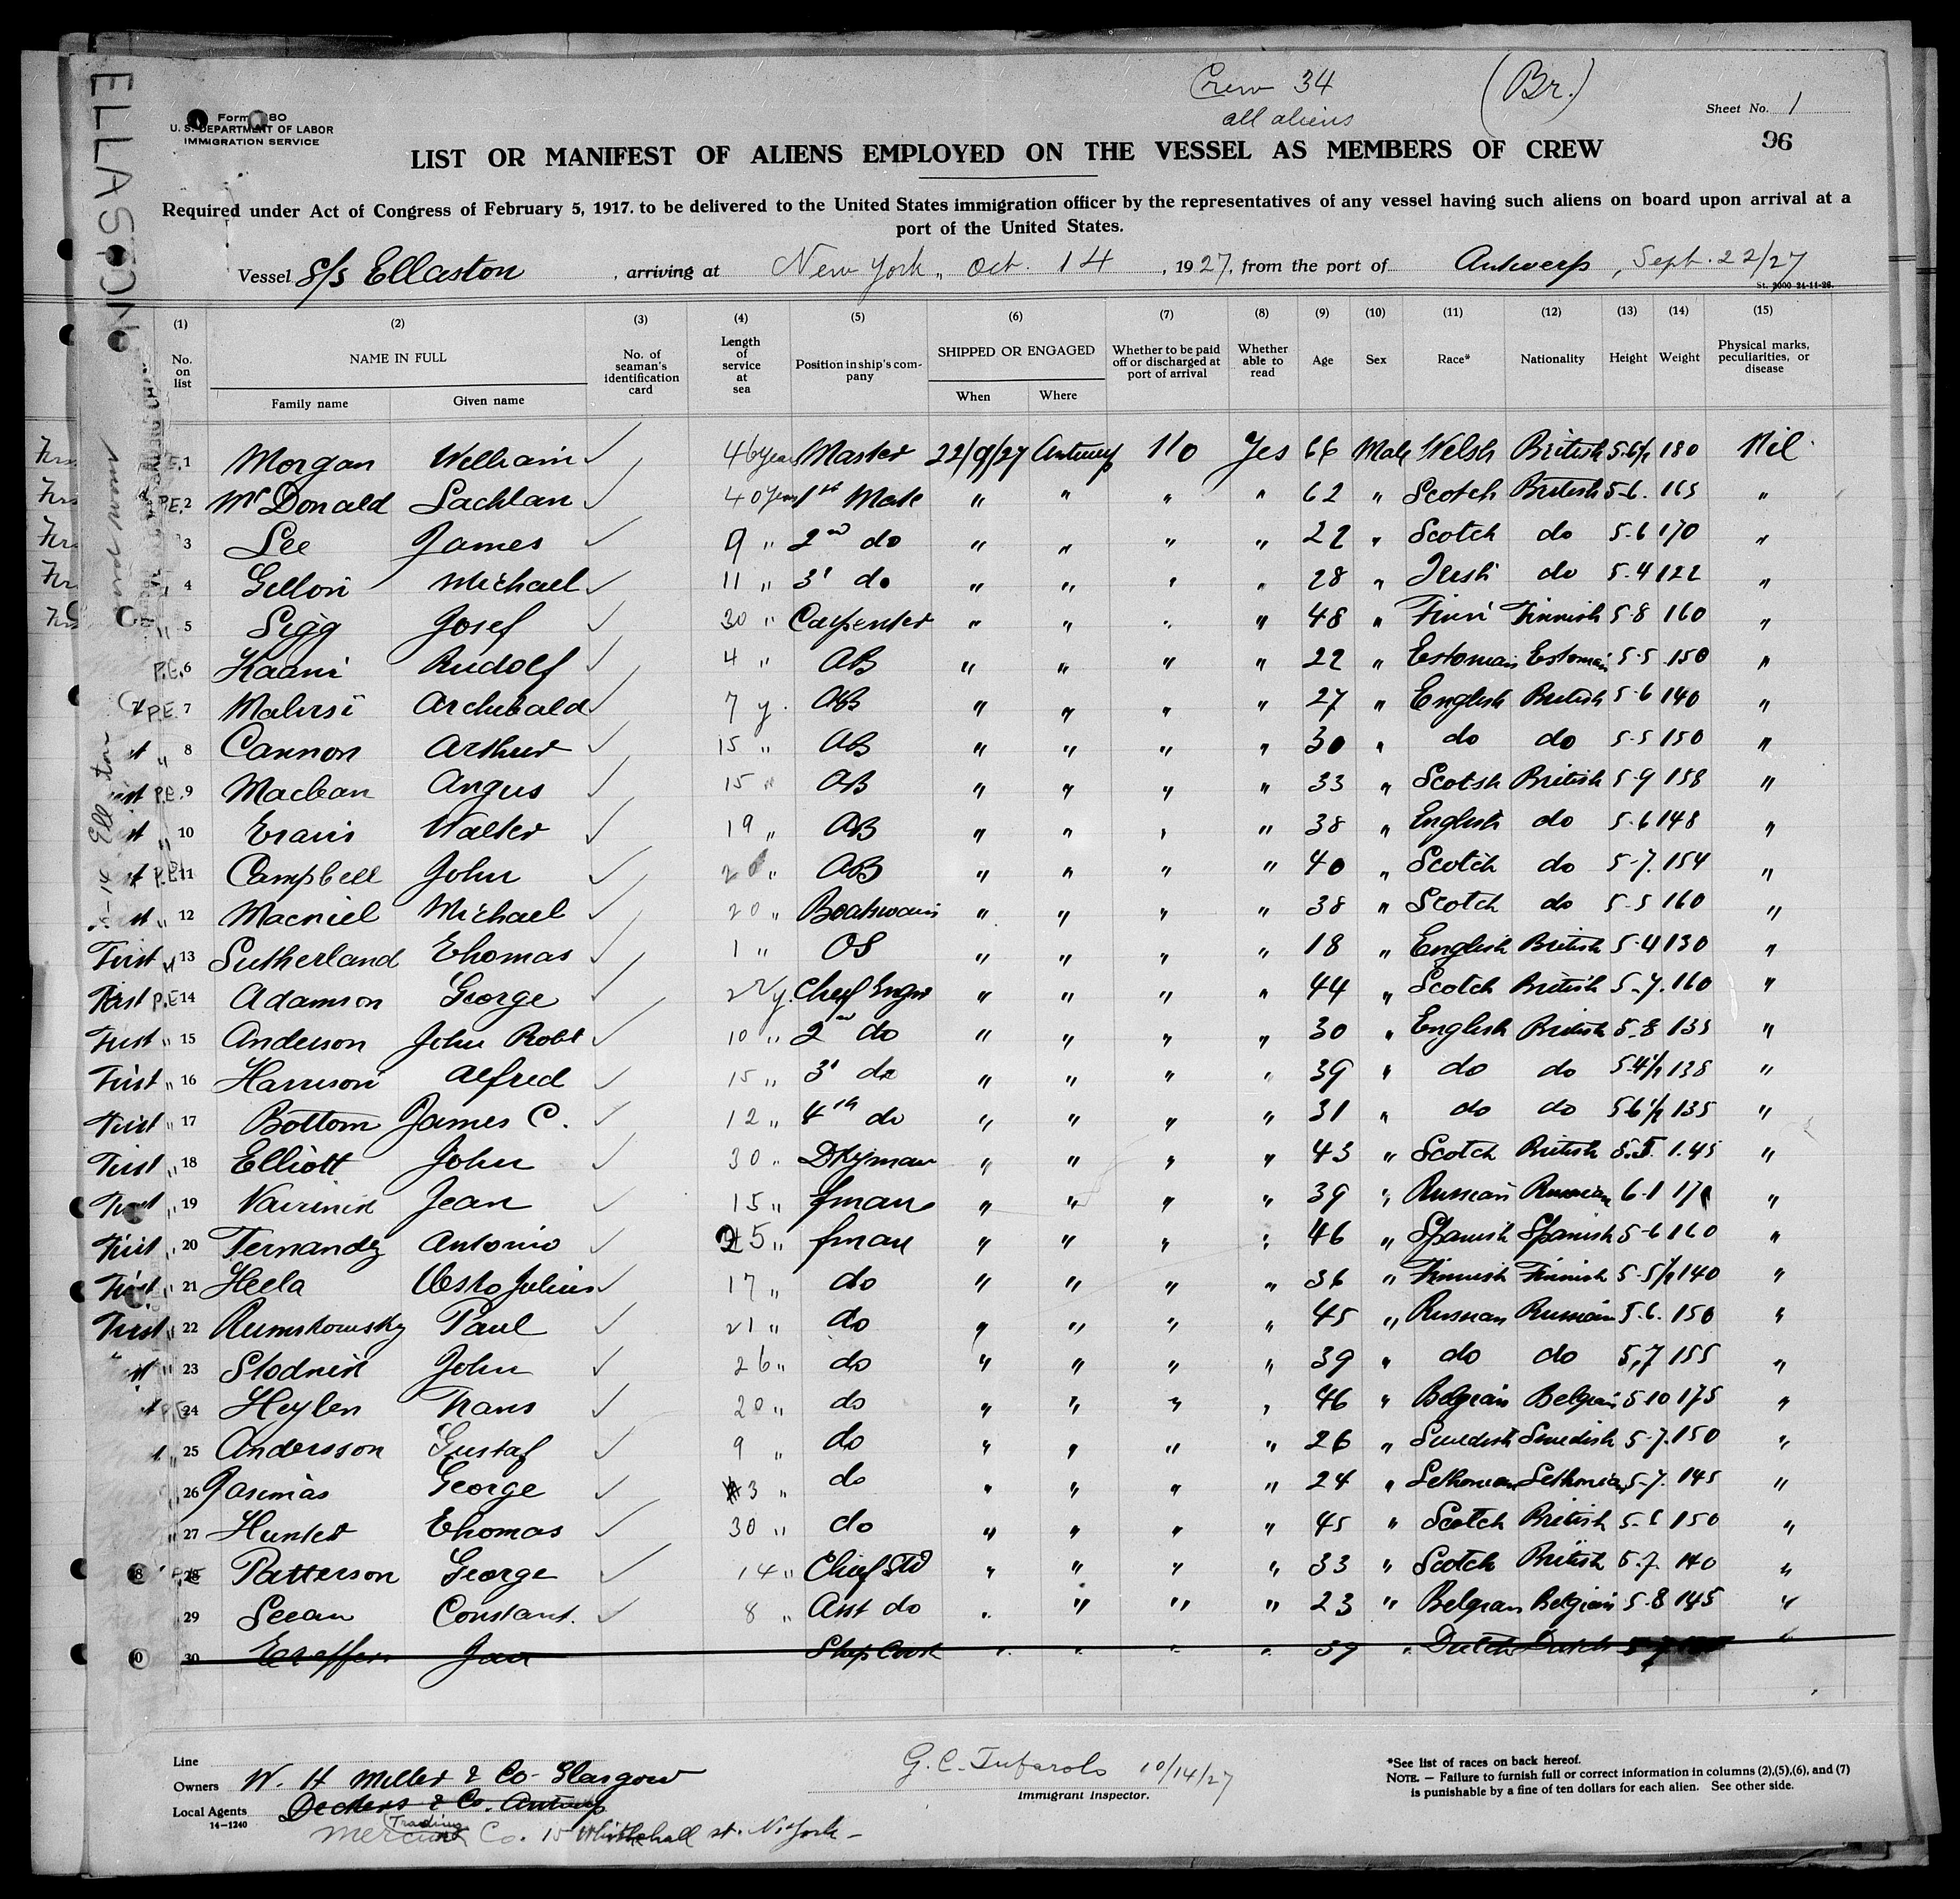 ELLASTON
Crew 34
all aliens
(Br.)
Sheet No. 1
96
Form 80
U. S. DEPARTMENT OF LABOR
IMMIGRATION SERVICE
LIST OR MANIFEST OF ALIENS EMPLOYED ON THE VESSEL AS MEMBERS OF CREW
Required under Act of Congress of February 5, 1917. to be delivered to the United States immigration officer by the representatives of any vessel having such aliens on board upon arrival at a
port of the United States.
Vessel S/S Ellaston, arriving at New York, Oct. 14, 1927, from the port of Antwerp, Sept. 22/27
St. 2000 24-11-26.
(1) (2) (3) (4) (5) (6) (7) (8) (9) (10) (11) (12) (13) (14) (15)
No. on list NAME IN FULL No. of seaman's identification card Length of service at sea Position in ship's company SHIPPED OR ENGAGED Whether to be paid off or discharged at port of arrival Whether able to read Age Sex Race* Nationality Height Weight Physical marks, peculiarities, or disease
Family name Given name When Where
1 Morgan William ✓ 46 years Master 22/9/27 Antwerp No Yes 66 Male Welsh British 5-6½ 180 Nil
P.E. 2 McDonald Lachlan ✓ 40 years 1st Mate " " " " 62 " Scotch British 5-6. 165 "
3 Lee James ✓ 9 " 2nd do " " " " 22 " Scotch do 5-6 170 "
4 Gillon Michael ✓ 11 " 3' do " " " " 28 " Irish do 5.4 122 "
5 Sigg Josef ✓ 30 " Carpenter " " " " 48 " Finn Finnish 5-8 160 "
P.E. 6 Kaani Rudolf ✓ 4 " AB " " " " 22 " Estonian Estonian 5-5 150 "
P.E. 7 Archibald ✓ 7 y. AB " " " " 27 " English British 5-6 140 "
8 Cannon Arthur ✓ 15 " AB " " " " 30 " do do 5-5 150 "
P.E. 9 Maclean Angus ✓ 15 " AB " " " " 33 " Scotsh British 5-9 158 "
10 Evans Walter ✓ 19 " AB " " " " 38 " English do 5-6 148 "
P.E. 11 Campbell John ✓ 20 " AB " " " " 40 " Scotch do 5-7. 154 "
12 Macniel Michael ✓ 20 " Boatswain " " " " 38 " Scotch do 5-5 160 "
First " 13 Sutherland Thomas ✓ 1 " OS " " " " 18 " English British 5-4 130 "
First P.E 14 Adamson George ✓ 22 y. Chief Engnr " " " " 44 " Scotch British 5-7. 160 "
First " 15 Anderson John Robt ✓ 10 " 2nd do " " " " 30 " English British 5-8 135 "
First " 16 Harrison Alfred ✓ 15 " 3' do " " " " 39 " do do 5-4½ 138 "
First " 17 Bottom James C. ✓ 12 " 4th do " " " " 31 " do do 5-6½ 135 "
First " 18 Elliott John ✓ 30 " Dkyman " " " " 43 " Scotch British 5.5. 1.45 "
First " 19 Jean ✓ 15 " fman " " " " 39 " Russian Russian 6-1 "
First " 20 Fernandez Antonio ✓ 25 " fman " " " " 46 " Spanish Spanish 5-6 160 "
First " 21 Heela Julius ✓ 17 " do " " " " 36 " Finnish Finnish 5-5½ 140 "
First " 22 Rumskowsky Paul ✓ 21 " do " " " " 45 " Russian Russian 5.6. 150 "
" 23 Slodnik John ✓ 26 " do " " " " 39 " do do 5,7 155 "
24 Heylen Frans ✓ 20 " do " " " " 46 " Belgian Belgian 5-10 175 "
25 Andersson Gustaf ✓ 9 " do " " " " 26 " Swedish Swedish 5-7. 150 "
26 George ✓ 3 " do " " " " 24 " 5-7. 145 "
27 Hunter Thomas ✓ 30 " do " " " " 45 " Scotch British 5-6 150 "
28 Patterson George ✓ 14 " Chief Std " " " " 33 " Scotch British 5.7. 140 "
29 Constant. ✓ 8 " Asst do " " " " 23 " Belgian Belgian 5-8 145 "
30 Jan Ships Cook " " " " 39 " Dutch Dutch
Line
Owners W. H Miller & Co- Glasgow
Local Agents Deckers & Co. Antwerp
14-1240
Trading
Co. 15 Whitehall st. N. York -
G. C. Tufarolo 10/14/27
Immigrant Inspector.
*See list of races on back hereof.
NOTE. — Failure to furnish full or correct information in columns (2),(5),(6), and (7)
is punishable by a fine of ten dollars for each alien. See other side.